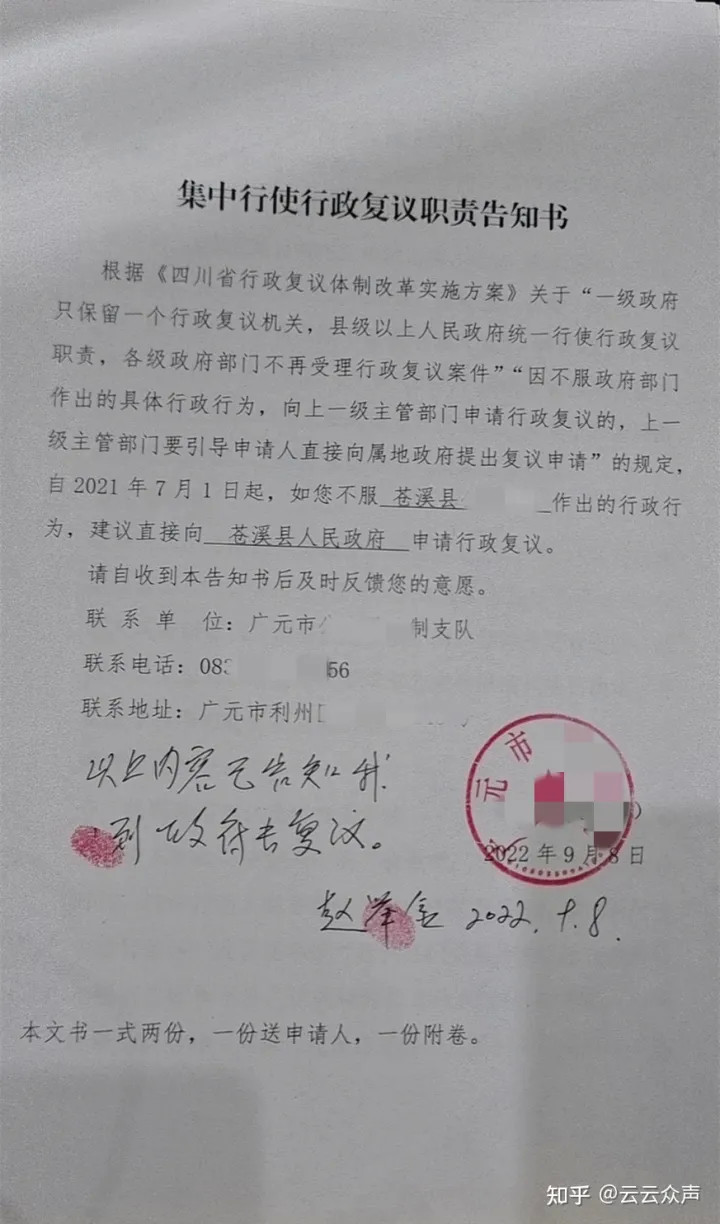 集中行使行政复议职责告知书
根据《四川省行政复议体制改革实施方案》关于“一级政府
只保留一个行政复议机关，县级以上人民政府统一行使行政复议
职责，各级政府部门不再受理行政复议案件”“因不服政府部门
作出的具体行政行为，向上一级主管部门申请行政复议的，上一
级主管部门要引导申请人直接向属地政府提出复议申请”的规定，
自2021年7月1日起，如您不服 苍溪县 作出的行政行
为，建议直接向 苍溪县人民政府 申请行政复议。
请自收到本告知书后及时反馈您的意愿。
联系单 位：广元市 制支队
联系电话：083 56
联系地址：广元市利州
以上内容已告知我.
到政府去复议。
元市
2022年9月8日
赵 2022.9.8.
本文书一式两份，一份送申请人，一份附卷。
知乎 @云云众声